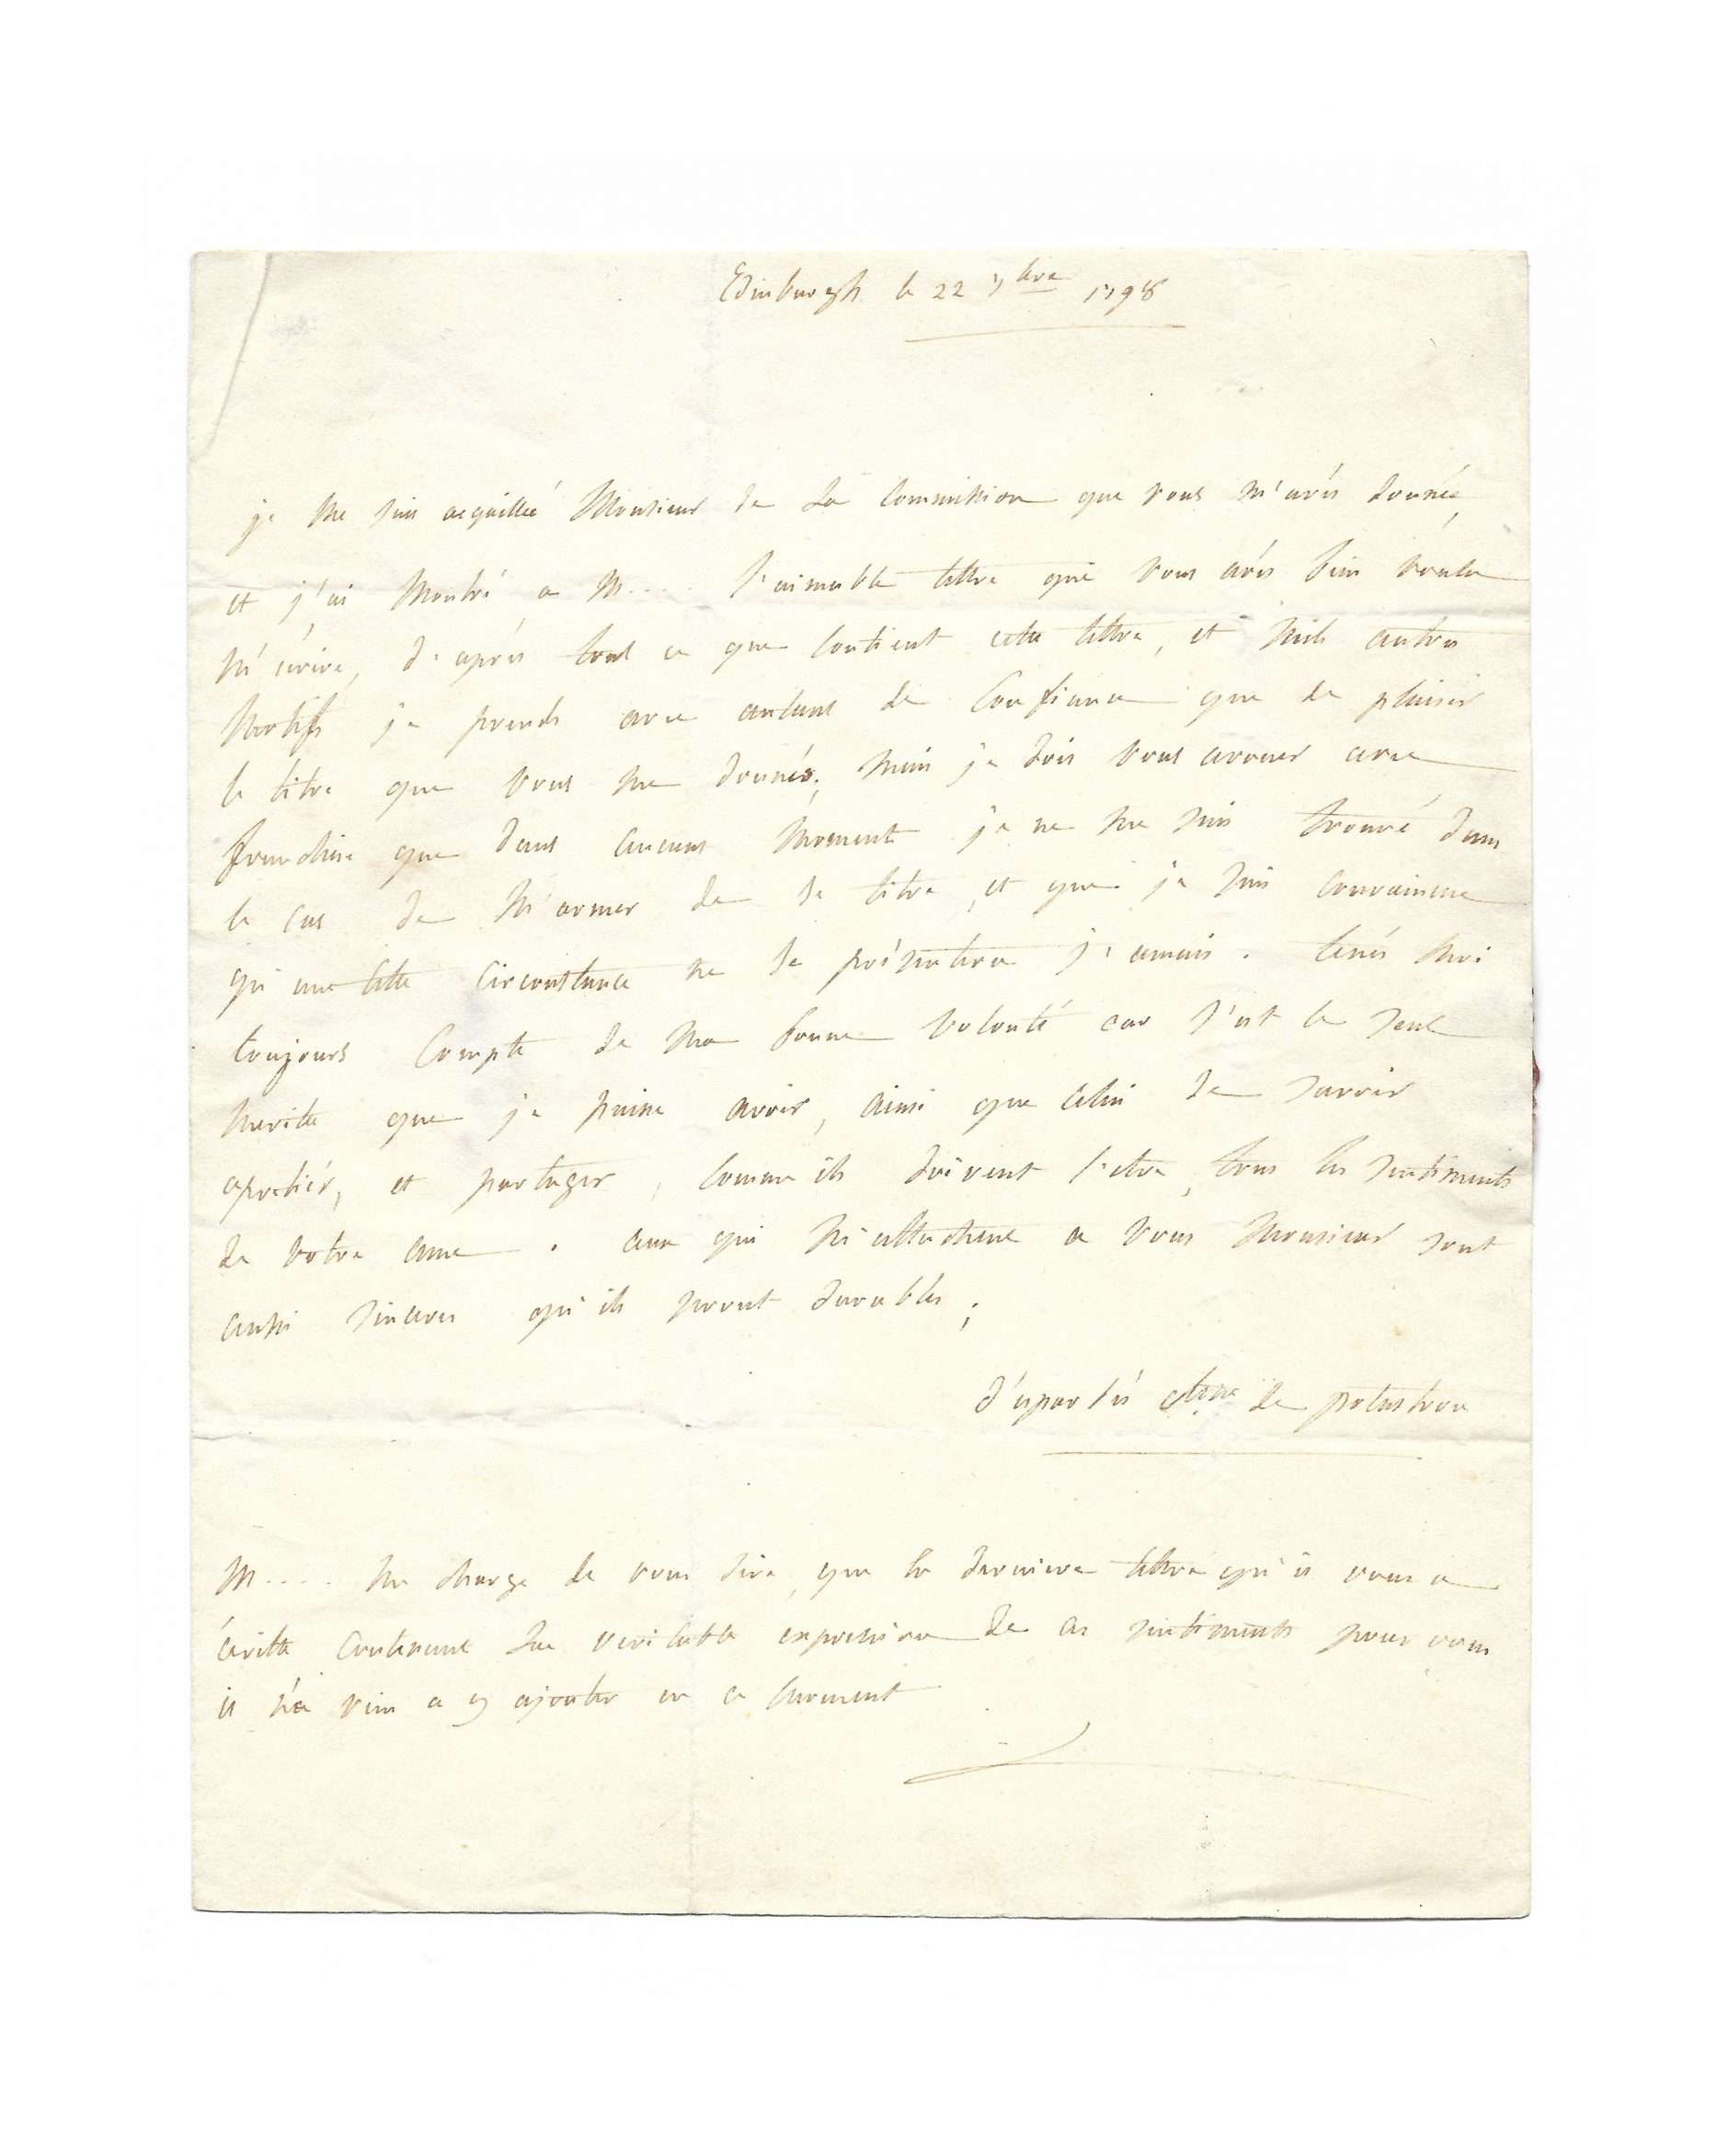 Edinburgh le 22 7bre 1798
je me suis acquittée Monsieur de La Commission que vous m'avés donnée,
et j'ai Montré a M.... l'aimable lettre que vous avés bien voulu
m'écrire, d'aprés tout ce que Contient cette lettre, et mile autres
Motifs je prends avec autant de Confiance que de plaisir
le titre que vous me donnés; mais je dois vous avouer avec
franchise que dans aucuns moments je ne me suis trouvé dans
le cas de m'armer de se titre, et que je suis convaincue
qu'une telle circonstance ne se présentera j'amais. tenés moi
toujours Compte de ma bonne volonté car s'est le seul
merite que je puisse avoir, ainsi que celui de savoir
apretiér, et partager, comme ils doivent l'etre, tous les sentiments
de votre ame. ceux qui m'attachent a vous Monsieur sont
aussi sinceres qu'ils seront durables;
de polastron
M.... me charge de vous dire, que la derniere lettre qu'il vous a
écritte contenant la veritable expression de ces sentiments pour vous
il n'a rien a y ajouter en ce moment